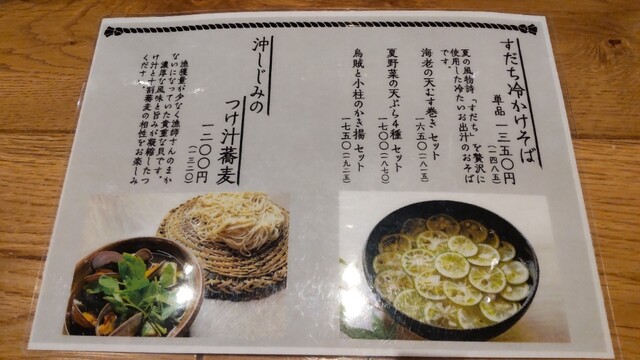 すだち冷かけそば
単品 一三五〇円
(一四八五)
夏の風物詩「すだち」を贅沢に
使用した冷たいお出汁のおそば
です。
海老の天むす巻きセット
一六五〇(一八一五)
夏野菜の天ぷら4種セット
一七〇〇(一八七〇)
烏賊と小柱のかき揚セット
一七五〇(一九二五)
沖しじみの
つけ汁蕎麦
一二〇〇円
(一三二〇)
漁獲量が少なく漁師さんのまか
ないになっていた貴重な貝です。
濃厚な風味と旨みが凝縮したつ
け汁と十割蕎麦の相性をお楽しみ
ください。